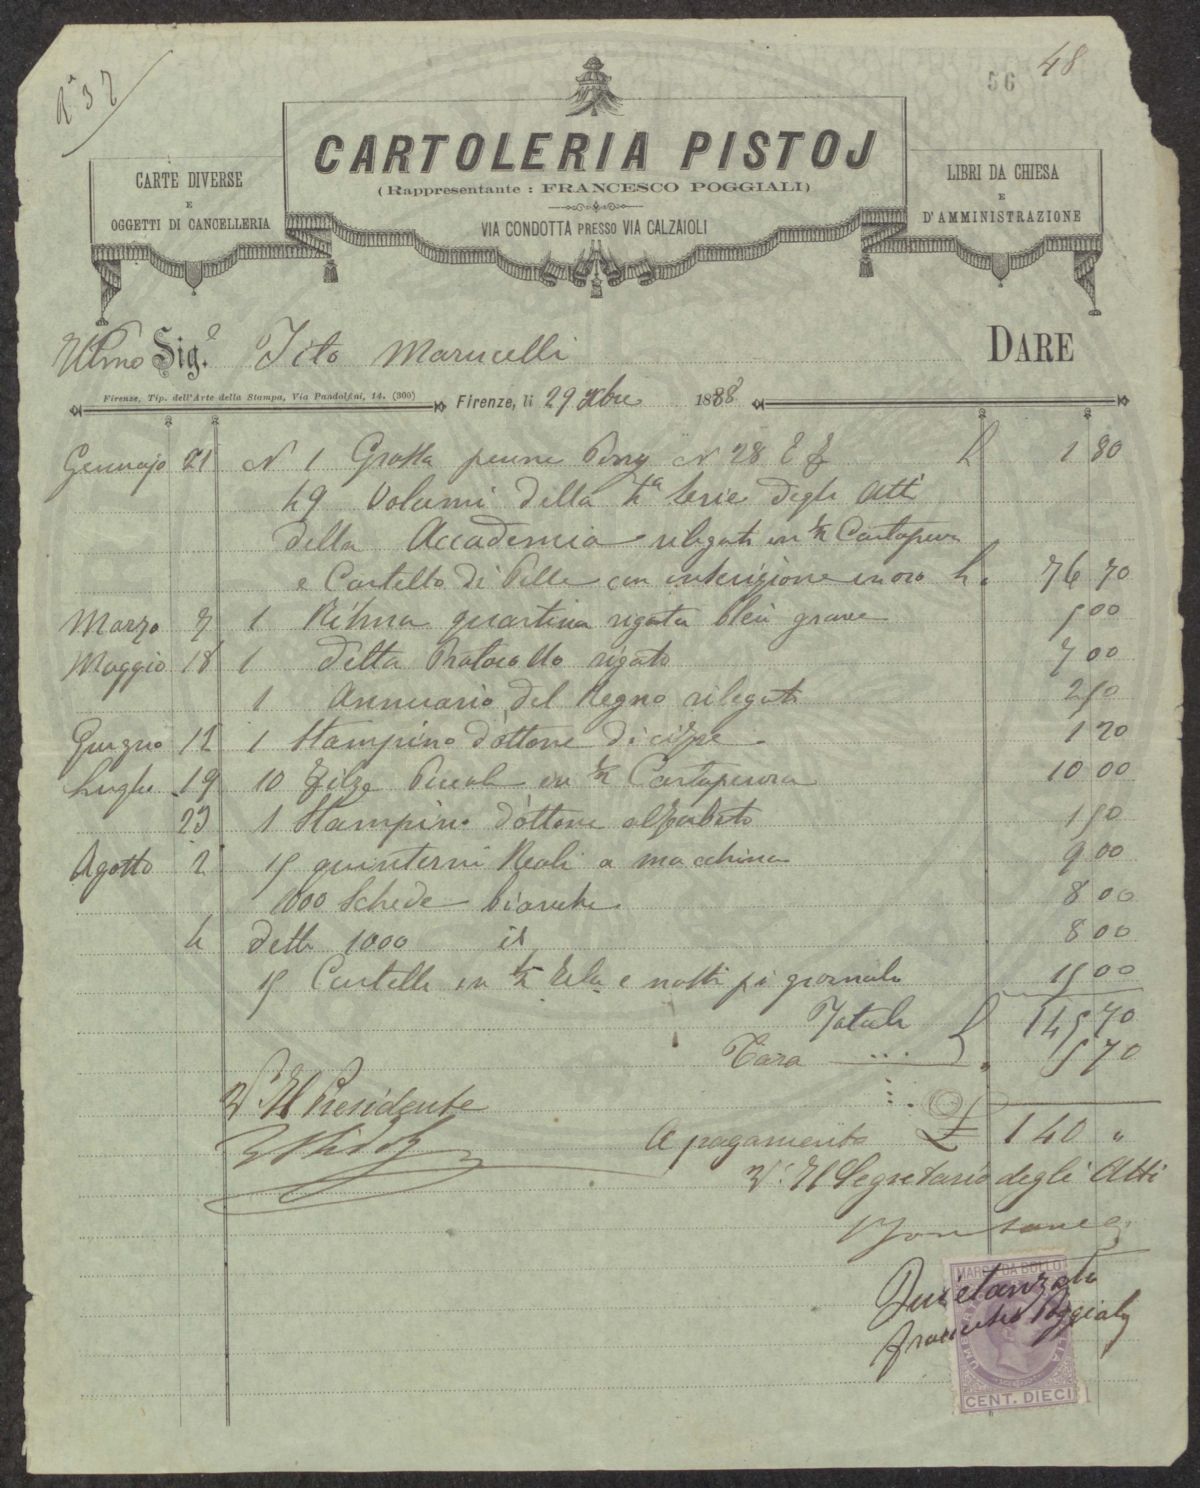 N° 37
56 48
CARTOLERIA PISTOJ
(Rappresentante: FRANCESCO POGGIALI)
VIA CONDOTTA PRESSO VIA CALZAIOLI
CARTE DIVERSE
E
OGGETTI DI CANCELLERIA
LIBRI DA CHIESA
E
D'AMMINISTRAZIONE
Illmo Sig.e Tito Marucelli DARE
Firenze, Tip. dell'Arte della Stampa, Via Pandolfini, 14. (300)
Firenze, li 29 Xbre 1888
Gennajo 21 N 1 Grossa penne Perry N 28 E F L 1 80
49 Volumi della 4a Serie degli Atti
della Accademia rilegati in ½ Cartapecora
e Cartello di Pelle con inscrizione in oro L. 76 70
Marzo 7 1 Risma quartina rigata bleu grave 5 00
Maggio 18 1 detta Protocollo rigato 7 00
1 Annuario del Regno rilegato 2 50
Giugno 12 1 Stampino d'ottone di cifre 1 20
Luglio 19 10 Filze Piccole in ½ Cartapecora 10 00
23 1 Stampino d'ottone alfabeto 1 50
Agosto 2 15 quinterni Reali a macchina 9 00
1000 Schede bianche 8 00
4 dette 1000 id 8 00
15 Cartelle in ½ Tela e nastri pi giornale 15 00
Totale L 145 70
Tara ... 5 70
V° Il Presidente
A pagamento £ 140 "
V° Il Segretario degli Atti
Quietanzato
Francesco Poggiali
MARCA DA BOLLO
CENT. DIECI